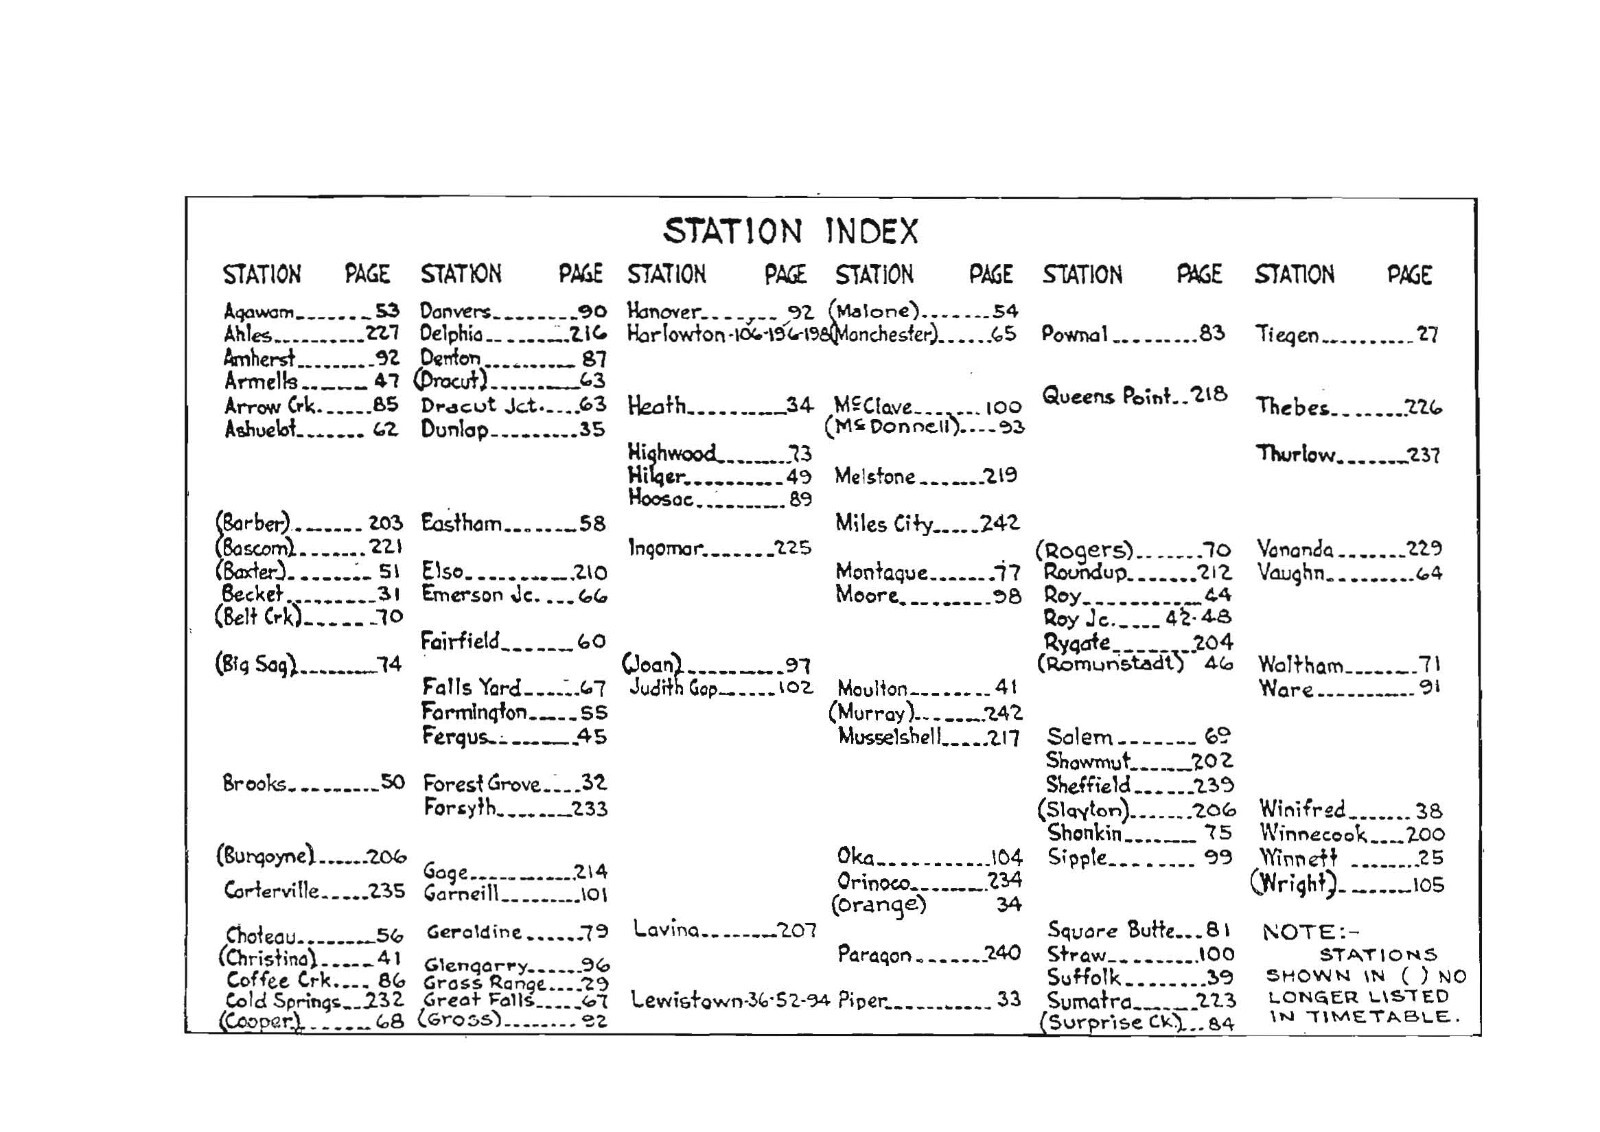 STATION INDEX
STATION PAGE
Agawam 53
Ahles 227
Amherst 92
Armells 47
Arrow Crk. 85
Ashuelot 62
(Barber) 203
(Bascom) 221
(Baxter) 51
Becket 31
(Belt Crk) 70
(Big Sag) 74
Brooks 50
(Burgoyne) 206
Carterville 235
Choteau 56
(Christina) 41
Coffee Crk. 86
Cold Springs 232
(Cooper) 68
STATION PAGE
Danvers 90
Delphia 216
Denton 87
(Dracut) 63
Dracut Jct. 63
Dunlap 35
Eastham 58
Elso 210
Emerson Jc. 66
Fairfield 60
Falls Yard 67
Farmington 55
Fergus 45
Forest Grove 32
Forsyth 233
Gage 214
Garneill 101
Geraldine 79
Glengarry 96
Grass Range 29
Great Falls 67
(Gross) 92
STATION PAGE
Hanover 92
Harlowton-106-196-198
Heath 34
Highwood 73
Hilger 49
Hoosac 89
Ingomar 225
(Joan) 97
Judith Gap 102
Lavina 207
Lewistown-36-52-94
STATION PAGE
(Malone) 54
(Manchester) 65
McClave 100
(McDonnell) 93
Melstone 219
Miles City 242
Montague 77
Moore 98
Moulton 41
(Murray) 242
Musselshell 217
Oka 104
Orinoco 234
(Orange) 34
Paragon 240
Piper 33
STATION PAGE
Pownal 83
Queens Point 218
(Rogers) 70
Roundup 212
Roy 44
Roy Jc. 42-48
Rygate 204
(Romunstadt) 46
Salem 69
Shawmut 202
Sheffield 239
(Slayton) 206
Shonkin 75
Sipple 99
Square Butte 81
Straw 100
Suffolk 39
Sumatra 223
(Surprise Ck.) 84
STATION PAGE
Tiegen 27
Thebes 226
Thurlow 237
Vananda 229
Vaughn 64
Waltham 71
Ware 91
Winifred 38
Winnecook 200
Winnett 25
(Wright) 105
NOTE:-
STATIONS
SHOWN IN ( ) NO
LONGER LISTED
IN TIMETABLE.